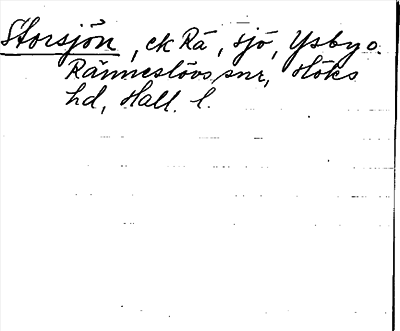 Storsjön, ek Rä, sjö, Ysby o.
Ränneslövs snr, Höks
hd, Hall. l.